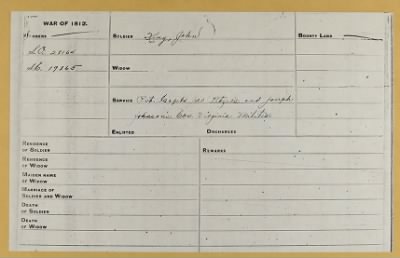 WAR OF 1812.
NUMBERS
SOLDIER Kay, John
BOUNTY LAND
S.O. 28164
S.C. 19865
WIDOW
SERVICE and Joseph
Cos. Virginia Militia
ENLISTED DISCHARGED
RESIDENCE OF SOLDIER
REMARKS
RESIDENCE OF WIDOW
MAIDEN NAME OF WIDOW
MARRIAGE OF SOLDIER AND WIDOW
DEATH OF SOLDIER
DEATH OF WIDOW